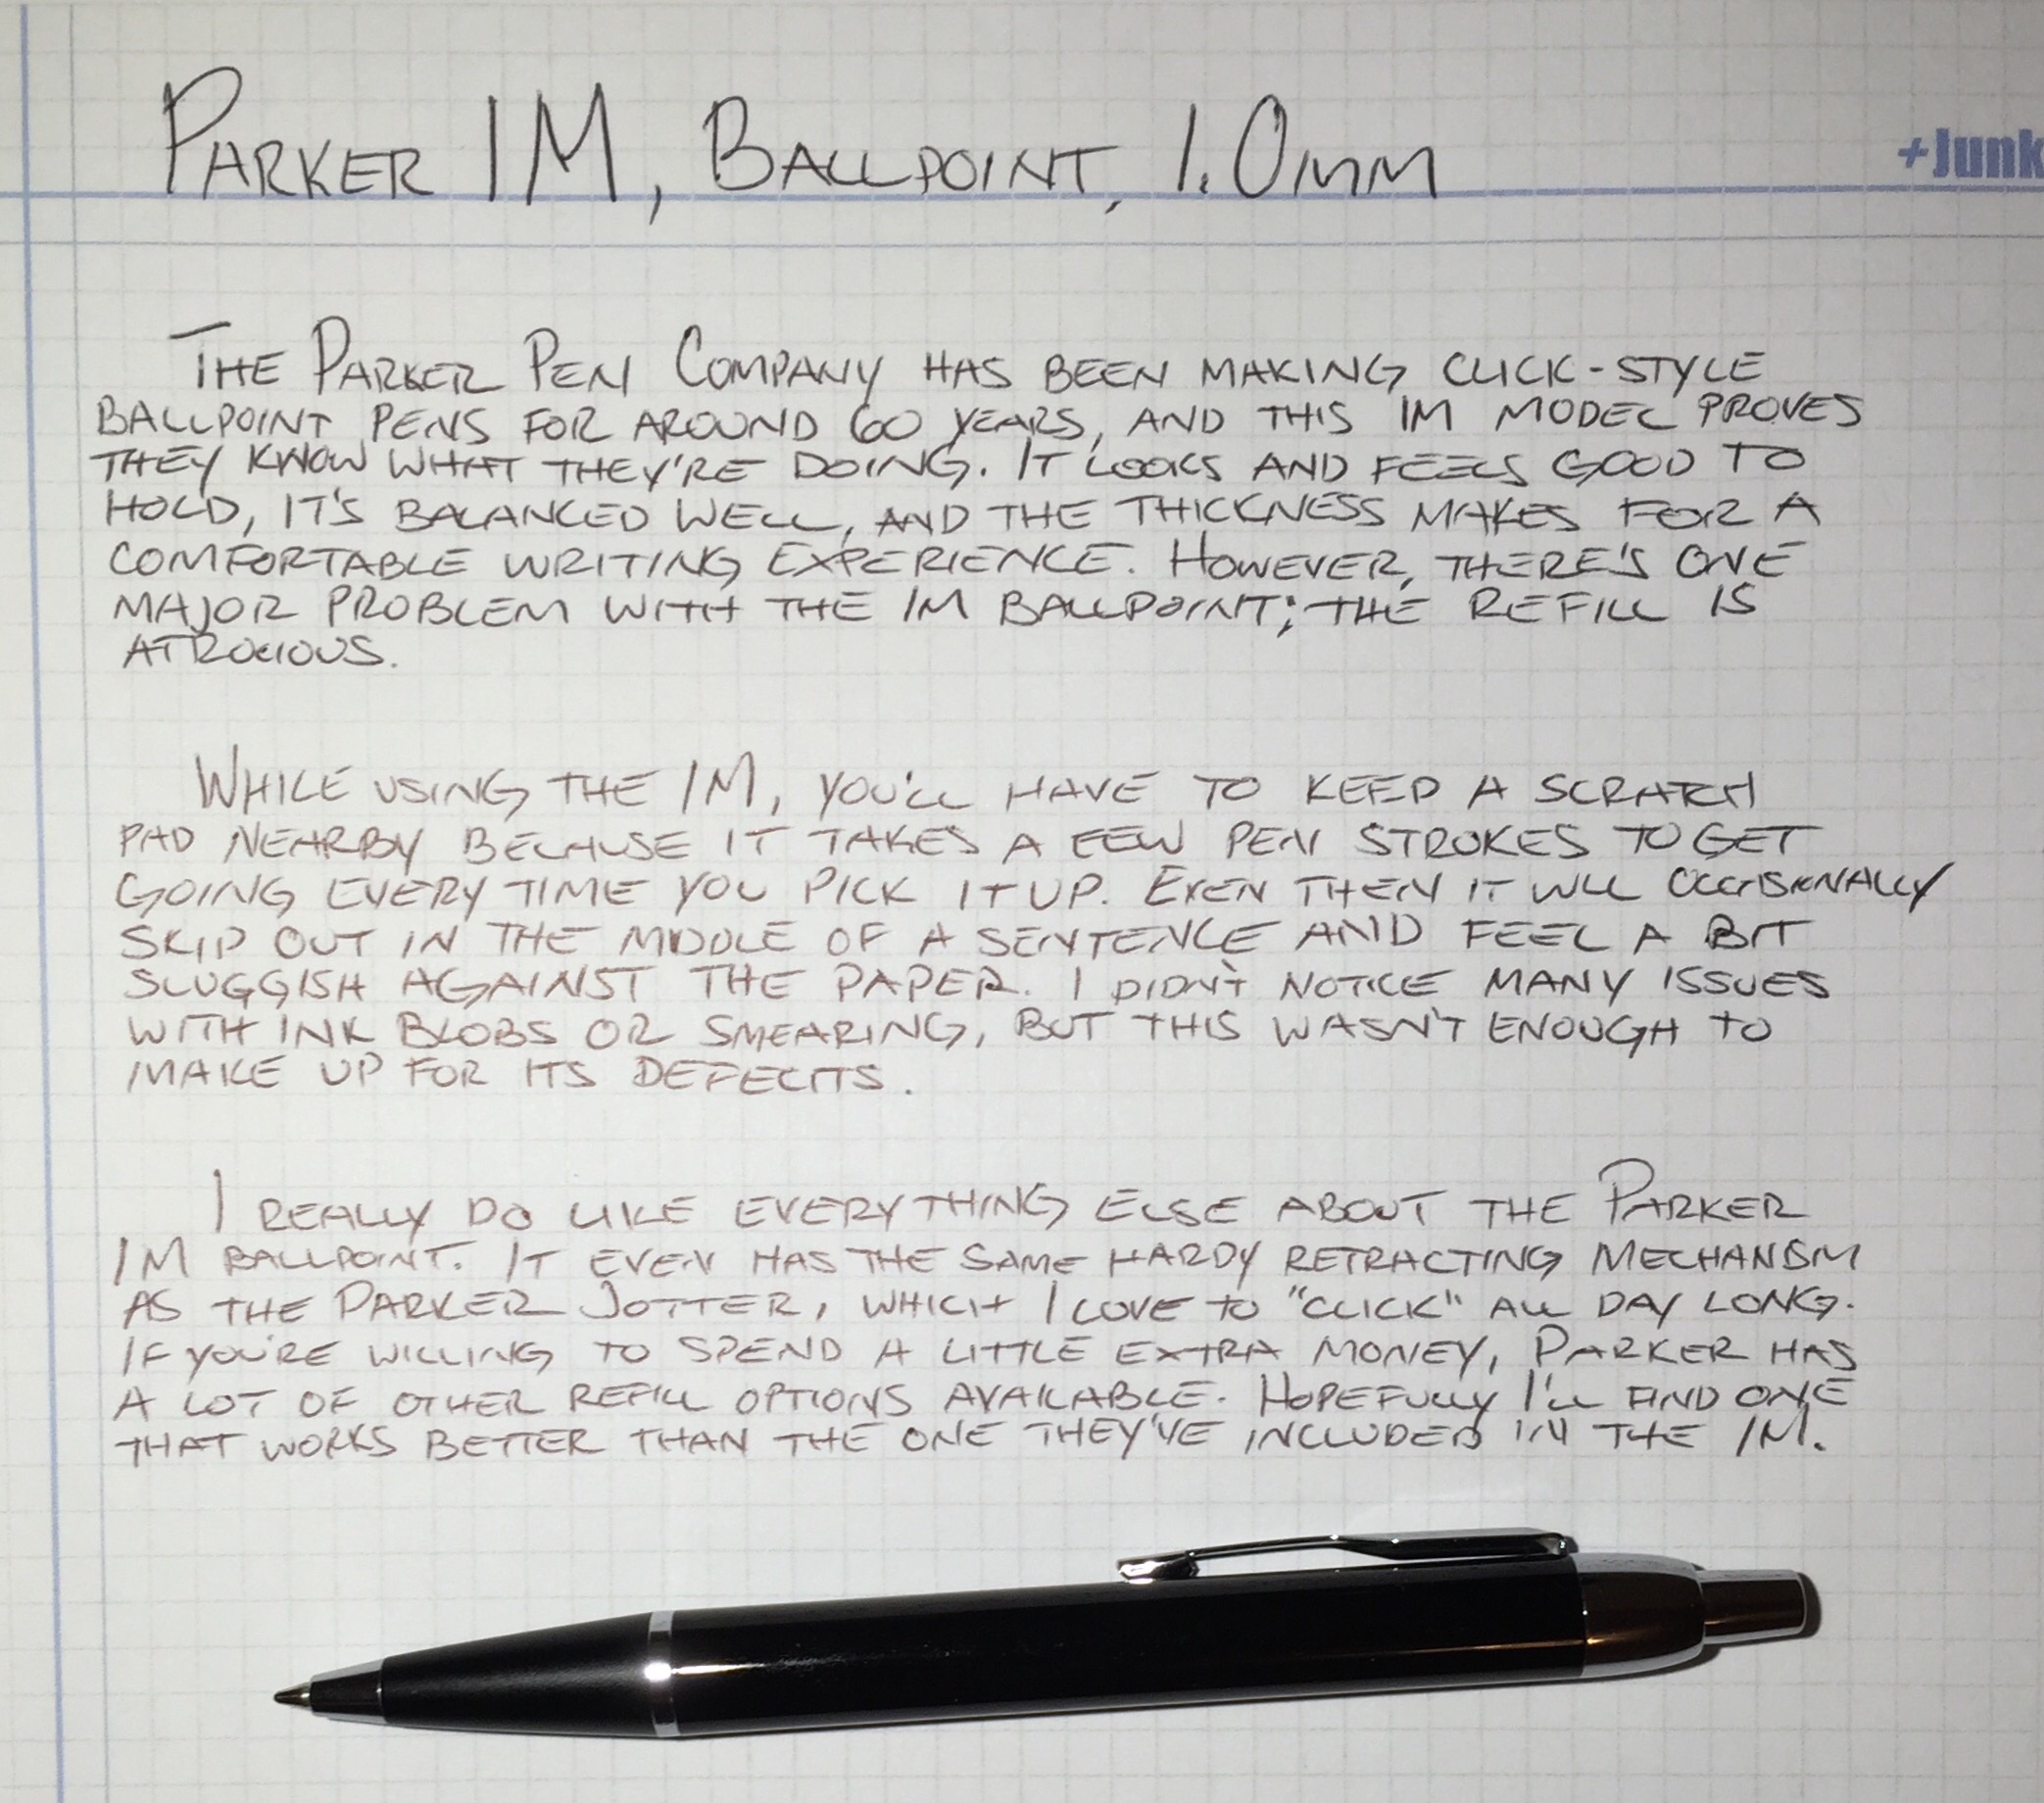 PARKER IM, BALLPOINT, 1.0MM
+Junk
THE PARKER PEN COMPANY HAS BEEN MAKING CLICK-STYLE
BALLPOINT PENS FOR AROUND 60 YEARS, AND THIS IM MODEL PROVES
THEY KNOW WHAT THEY'RE DOING. IT LOOKS AND FEELS GOOD TO
HOLD, IT'S BALANCED WELL, AND THE THICKNESS MAKES FOR A
COMFORTABLE WRITING EXPERIENCE. HOWEVER, THERE'S ONE
MAJOR PROBLEM WITH THE IM BALLPOINT; THE REFILL IS
ATROCIOUS.
WHILE USING THE IM, YOU'LL HAVE TO KEEP A SCRATCH
PAD NEARBY BECAUSE IT TAKES A FEW PEN STROKES TO GET
GOING EVERY TIME YOU PICK IT UP. EVEN THEN IT WILL OCCASIONALLY
SKIP OUT IN THE MIDDLE OF A SENTENCE AND FEEL A BIT
SLUGGISH AGAINST THE PAPER. I DIDN'T NOTICE MANY ISSUES
WITH INK BLOBS OR SMEARING, BUT THIS WASN'T ENOUGH TO
MAKE UP FOR ITS DEFECITS.
I REALLY DO LIKE EVERYTHING ELSE ABOUT THE PARKER
IM BALLPOINT. IT EVEN HAS THE SAME HARDY RETRACTING MECHANISM
AS THE PARKER JOTTER, WHICH I LOVE TO "CLICK" ALL DAY LONG.
IF YOU'RE WILLING TO SPEND A LITTLE EXTRA MONEY, PARKER HAS
A LOT OF OTHER REFILL OPTIONS AVAILABLE. HOPEFULLY I'LL FIND ONE
THAT WORKS BETTER THAN THE ONE THEY'VE INCLUDED IN THE IM.